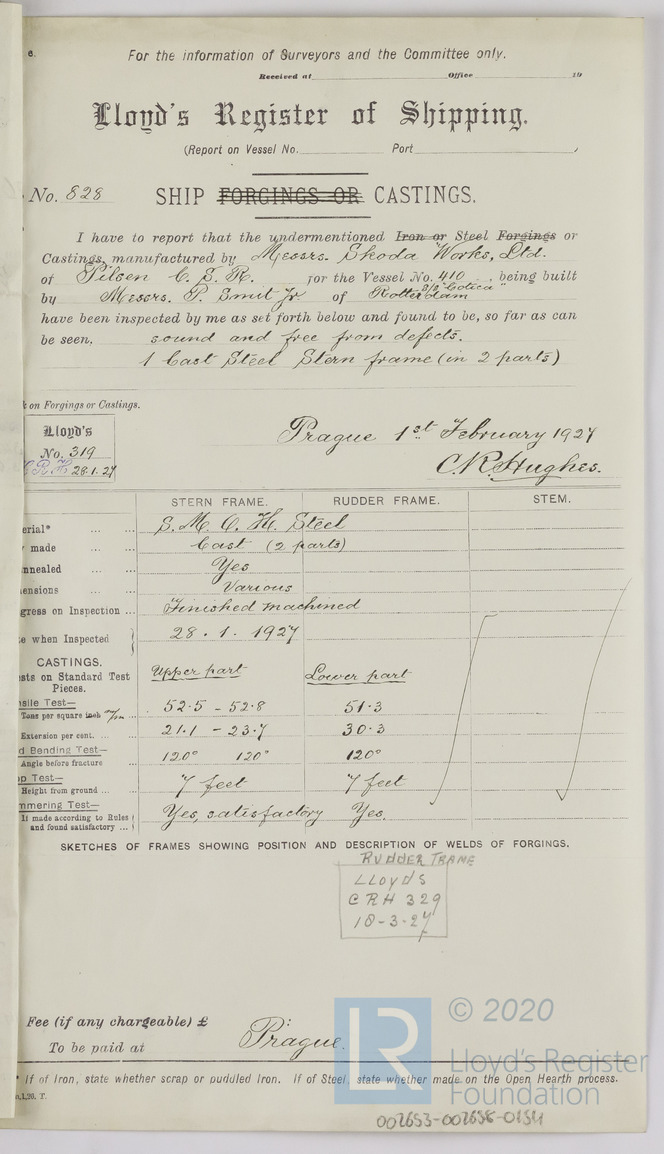 e.
For the information of Surveyors and the Committee only.
Received at Office 19
Lloyd's Register of Shipping.
(Report on Vessel No. Port ,
No. 828 SHIP FORGINGS OR CASTINGS.
I have to report that the undermentioned Iron or Steel Forgings or
Castings, manufactured by Messrs. Skoda Works, Ltd.
of Pilsen C. S. R. for the Vessel No. 410, being built
S/S "Cotica"
by Messrs. P. Smit Jr of Rotterdam
have been inspected by me as set forth below and found to be, so far as can
be seen, sound and free from defects.
1 Cast Steel Stern frame (in 2 parts)
on Forgings or Castings.
Lloyd's
No. 319
C.R.H. 28.1.27
Prague 1st February 1927
C.R.Hughes.
STERN FRAME. RUDDER FRAME. STEM.
erial* ... ... S. M. O. H. Steel
made ... ... Cast (2 parts)
nnealed ... ... Yes
ensions ... ... Various
gress on Inspection ... Finished machined
e when Inspected 28.1.1927
CASTINGS.
sts on Standard Test Pieces. Upper part Lower part
sile Test—
Tons per square inch ... 52.5 – 52.8 51.3
Extension per cent. ... 21.1 – 23.7 30.3
d Bending Test—
Angle before fracture 120° 120° 120°
p Test—
Height from ground ... 7 feet 7 feet
mmering Test—
If made according to Rules and found satisfactory ... Yes, satisfactory Yes.
SKETCHES OF FRAMES SHOWING POSITION AND DESCRIPTION OF WELDS OF FORGINGS.
RUDDER FRAME
LLOYDS
CRH 329
18-3-27
Fee (if any chargeable) £
To be paid at Prague.
* If of Iron, state whether scrap or puddled Iron. If of Steel, state whether made on the Open Hearth process.
,1,26. T.
LR
© 2020
Lloyd's Register
Foundation
002653-002658-0154